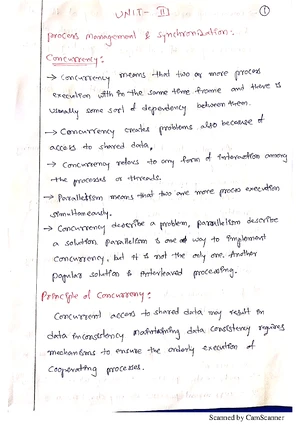 UNIT- II
1
process management & synchronization:
Concurrency:
→ Concurrency means that two or more process
execution with in the same time frame and there is
usually some sort of dependency between them.
→ Concurrency creates problems also because of
access to shared data,
→ Concurrency relaes to any form of interaction among
the processes or threads.
→ Parallelism means that two are more process execution
simultaneously.
→ Concurrency describe a problem, parallelism describe
a solution. parallelism is one of way to implement
concurrency, but it is not the only one. Another
popular solution is interleaved processing.
Principle of Concurrency:
Concurrent access to shared data may result in
data inconsistency maintaining data consistency requires
mechanisms to ensure the orderly execution of
cooperating processes.
Scanned by CamScanner